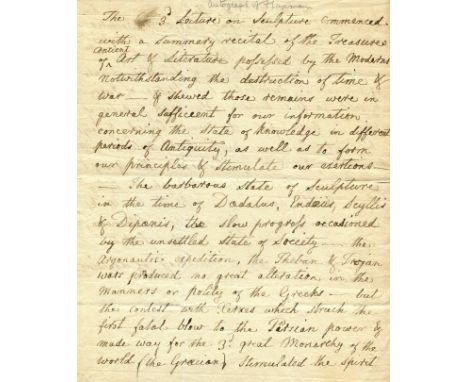 Autograph of Flaxman
The 3.d Lecture on Sculpture commenced
with a summary recital of the Treasures
of Antient Art & Literature possessed by the Moderns
notwithstanding the destruction of time &
war — & shewed those remains were in
general sufficient for our information
concerning the state of knowledge in different
periods of Antiquity, as well as to form
our principles & stimulate our exertions —
— The barbarous state of Sculpture
in the time of Dædalus, Endæus, Scyllis
& Dipænis, the slow progress occasioned
by the unsettled state of Society — the
Argonautic expedition, the Theban & Trojan
wars produced no great alteration in the
manners or polity of the Greeks — but
the contest with Xerxes which struck the
first fatal blow to the Persian power &
made way for the 3.d great Monarchy of the
world (the Grecian) stimulated the spirit